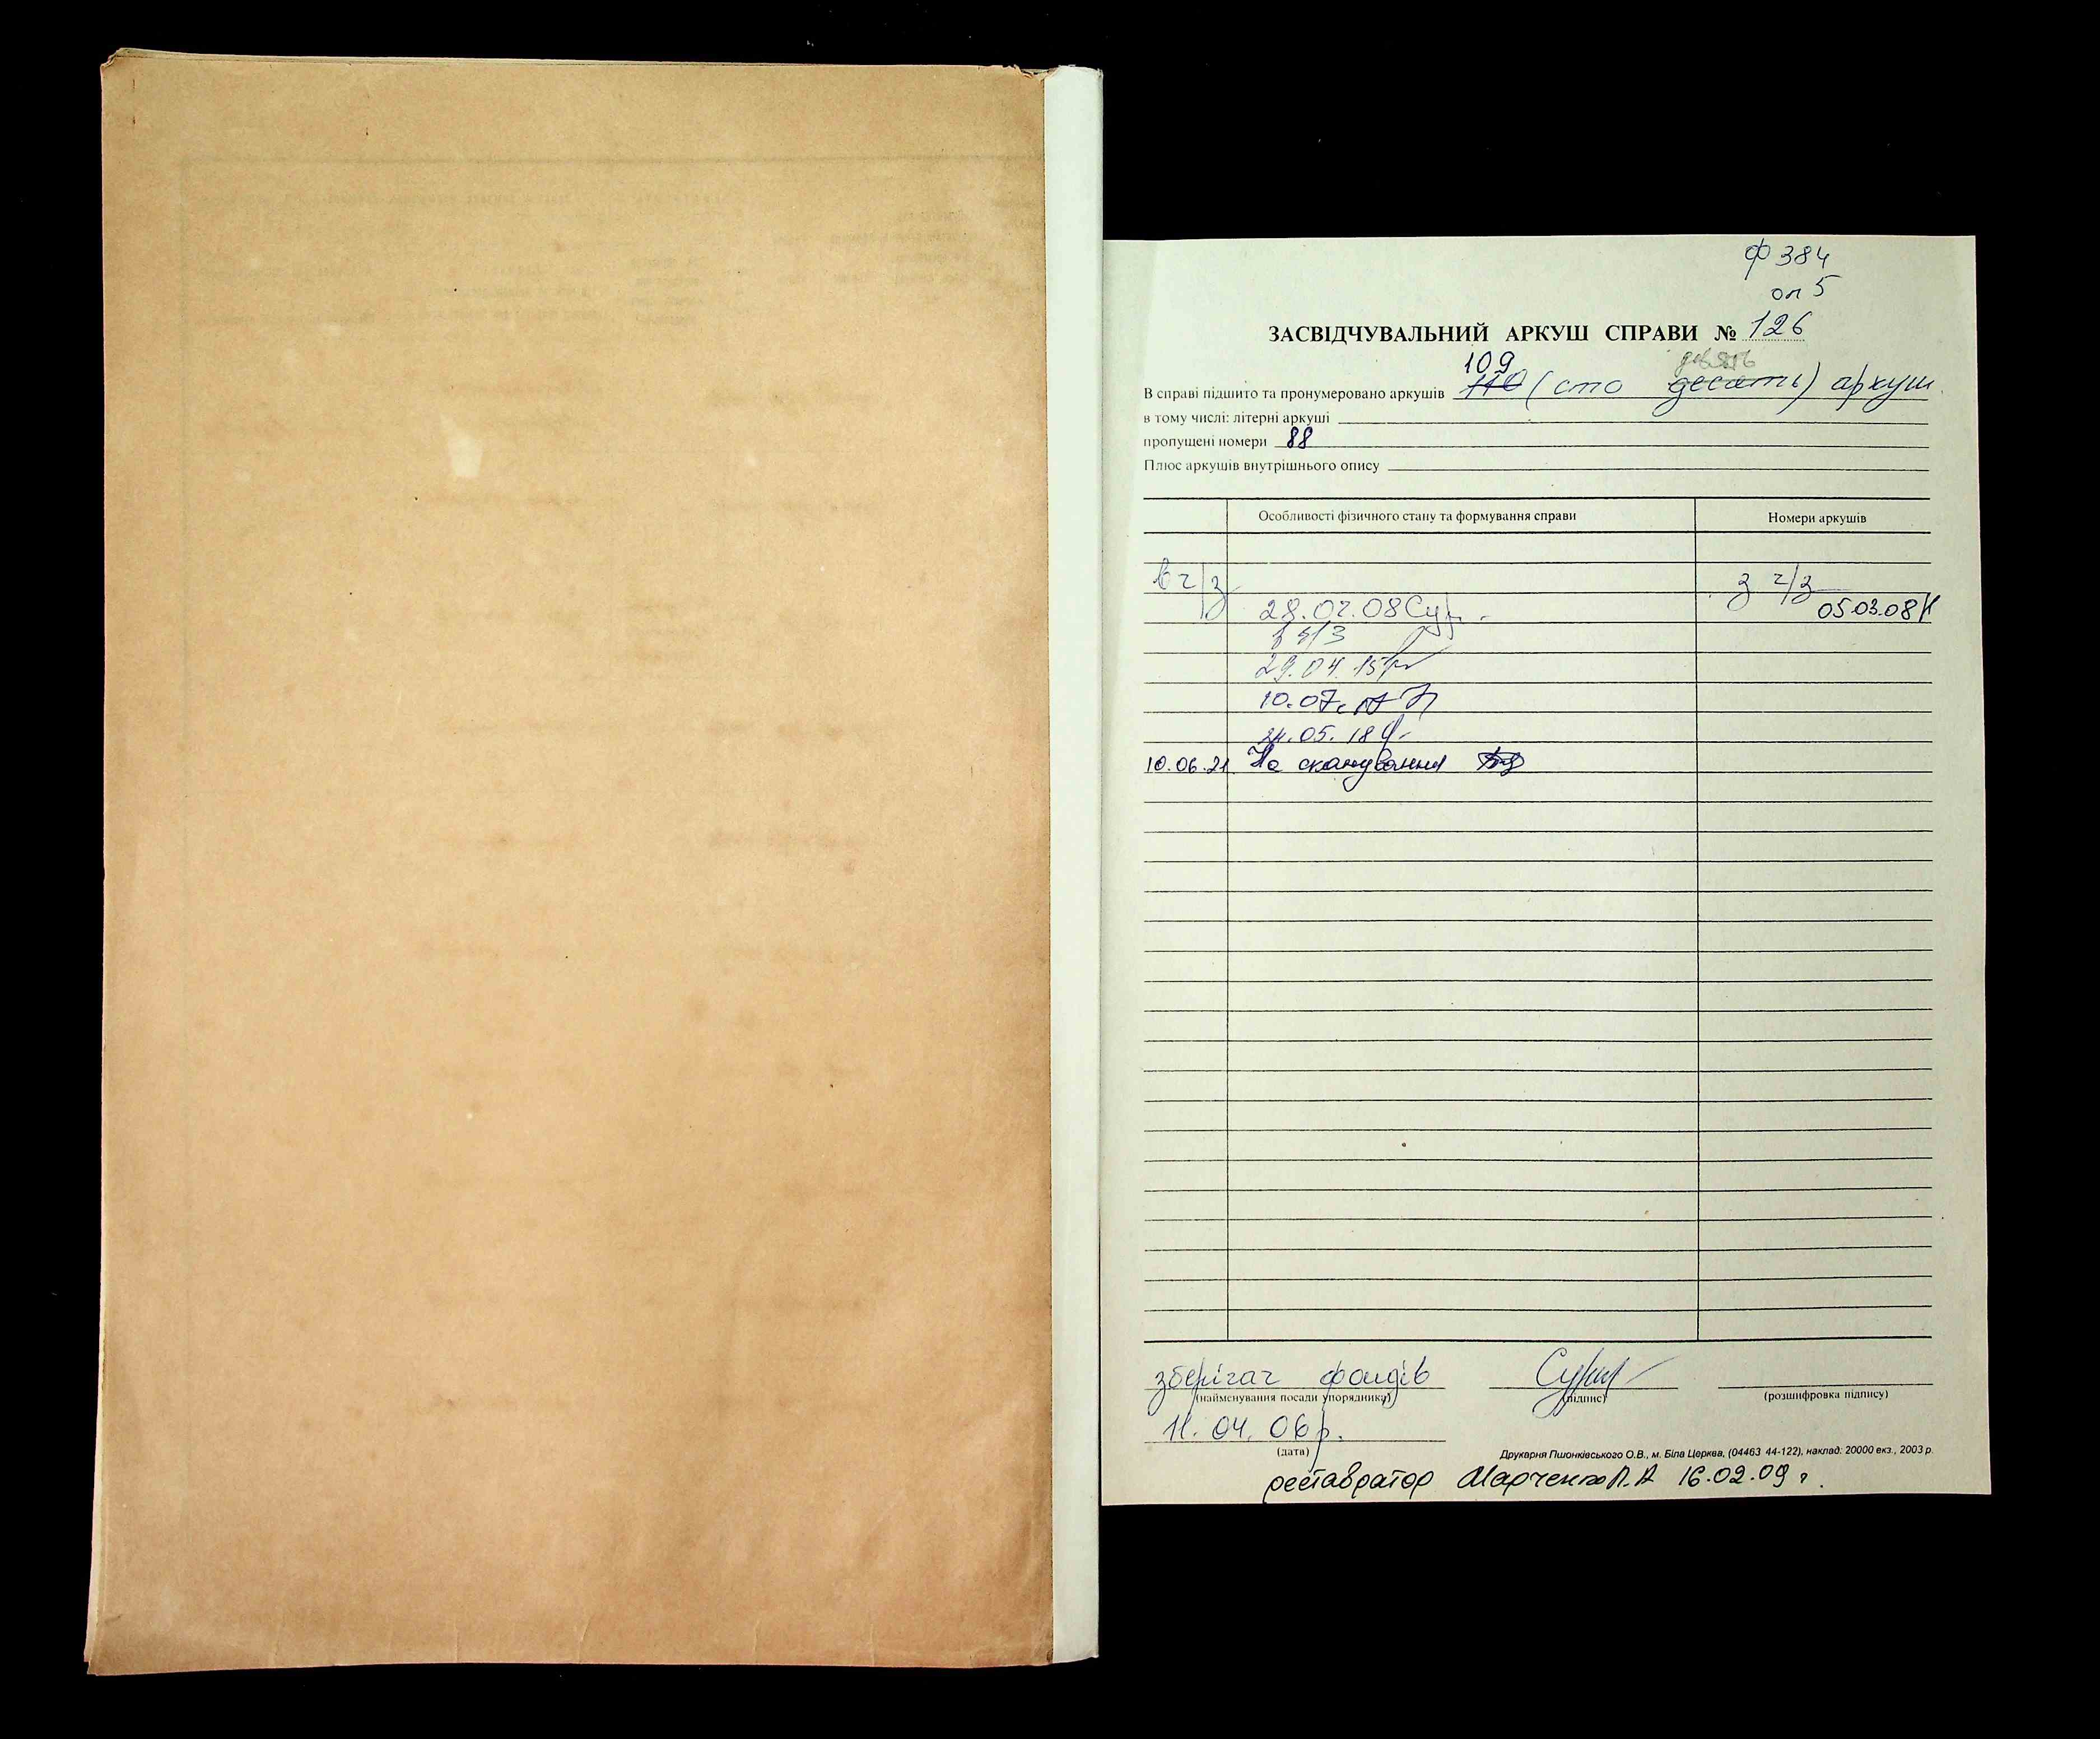 ф 384
оп 5
ЗАСВІДЧУВАЛЬНИЙ АРКУШ СПРАВИ № 126
109 девять
В справі підшито та пронумеровано аркушів 110 (сто десять) аркуш
в тому числі: літерні аркуші
пропущені номери 88
Плюс аркушів внутрішнього опису
Особливості фізичного стану та формування справи Номери аркушів
в ч/з з ч/з
28.02.08 Сур. 05.03.08
в ч/з
29.04.15
10.07.17
24.05.18
10.06.21 На сканування
зберігач фондів
(найменування посади упорядника) (підпис) (розшифровка підпису)
11.04.06р.
(дата)
Друкарня Пшонківського О.В., м. Біла Церква, (04463 44-122), наклад: 20000 екз., 2003 р.
реставратор Марченко Л.А 16.02.09 г.